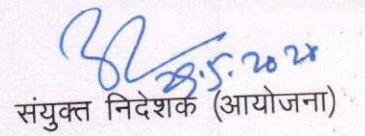 28.5.2020
संयुक्त निदेशक (आयोजना)